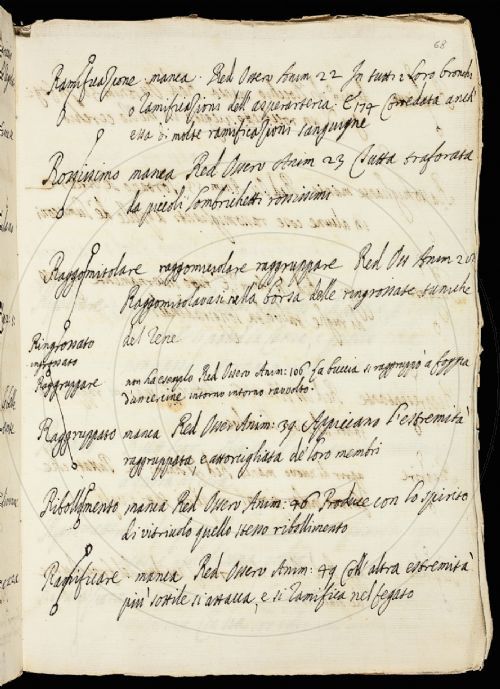 68
Ramificazione · manca · Red Osserv Anim 22 In tutti i loro bronchi
o ramificazioni dell'asperarteria. E 174 Corredata anch
essa di molte ramificazioni sanguigne
Rossissimo manca Red Osserv Anim 23 Tutta traforata
da piccoli lombrichetti rossissimi
Raggomitolare raggomitolare raggruppare Red Oss Anim
Raggomitolavasi nella borsa delle ringrossate tuniche
Ringrossato del Pene
ingrossato
Raggruppare non ha esemplo Red Osserv Anim: 106 La buccia si raggruppò a foggia
intorno intorno ravvolto.
Raggruppato manca Red Osserv Anim: 39 Appiccano l'estremità
raggruppata e attorcigliata de loro membri
Ribollimento manca Red Osserv Anim: 46 Produce con lo spirito
di vitriuolo quello stesso ribollimento
Ramificare manca Red Osserv Anim: 49 Coll'altra estremità
più sottile si attacca, e si ramifica nel fegato